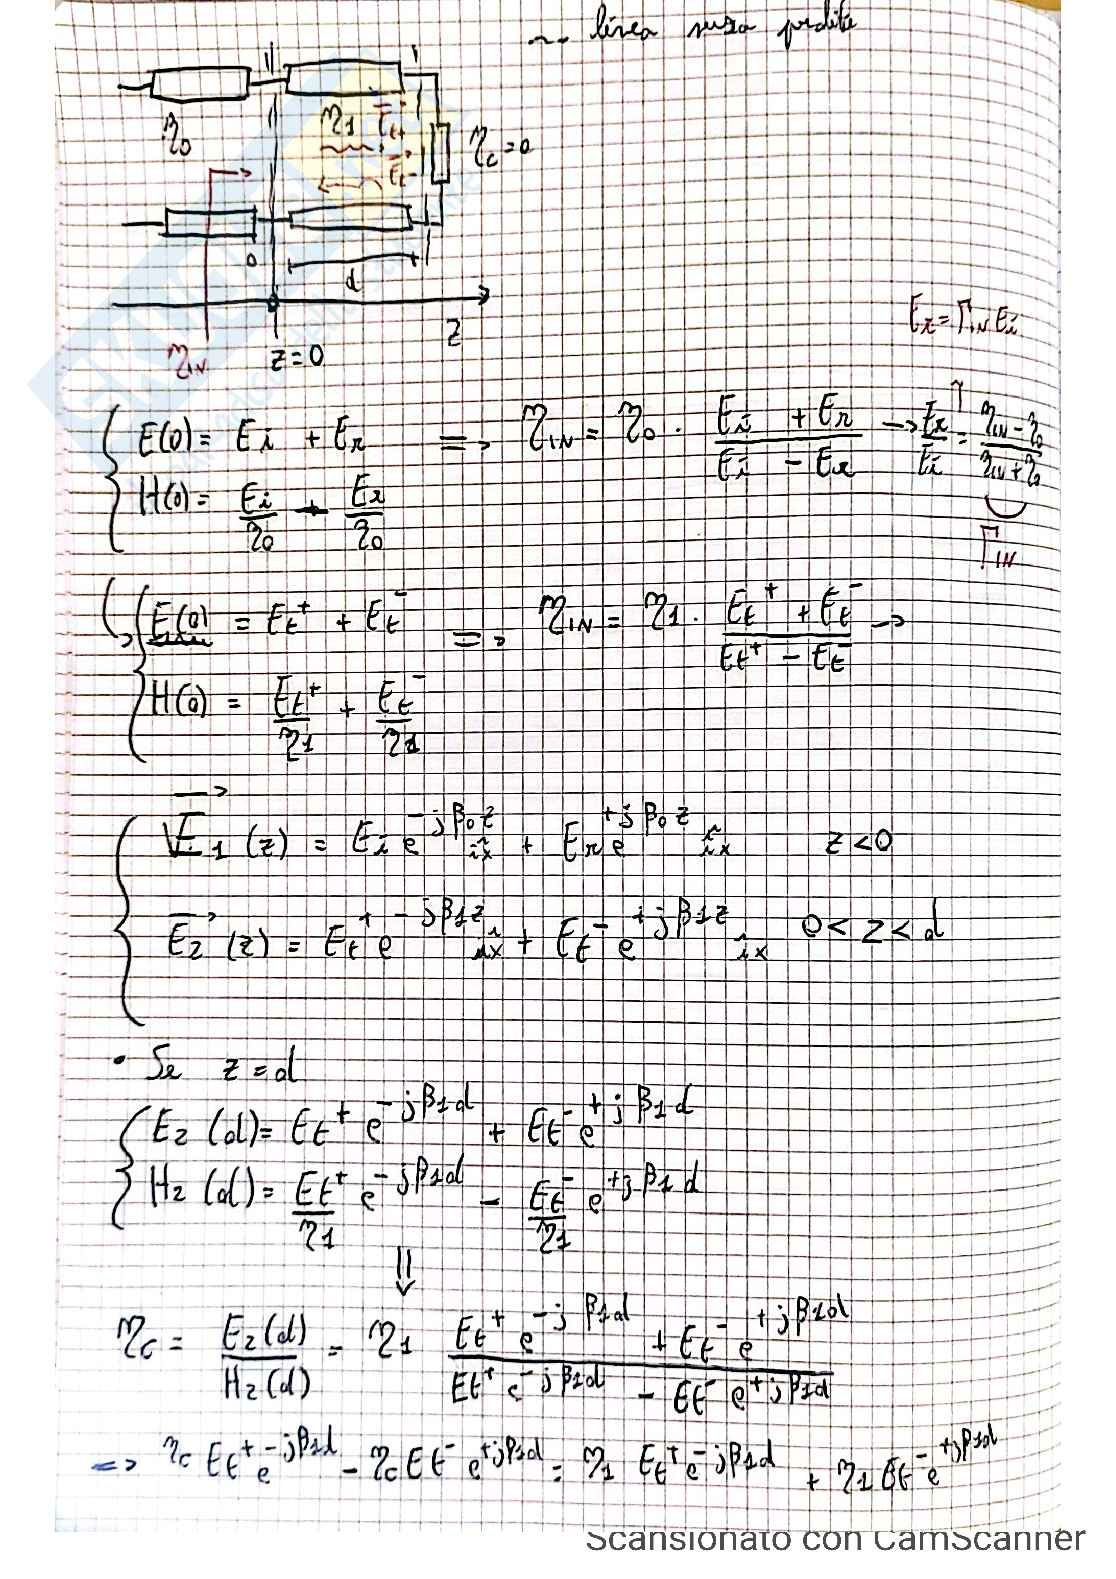 ~~ linea senza perdite
η0 η1 Et+ Et- ηc=0
0 d
ηIN z=0 z
Er = ΓIN Ei
E(0) = Ei + Er => ηIN = η0 · (Ei + Er)/(Ei - Er) -> Er/Ei = (ηIN - η0)/(ηIN + η0)
H(0) = Ei/η0 + Er/η0
ΓIN
E(0) = Et+ + Et- => ηIN = η1 · (Et+ + Et-)/(Et+ - Et-) ->
H(0) = Et+/η1 + Et-/η1
E1 (z) = Ei e^-jβ0z ix + Er e^+jβ0z ix z<0
E2 (z) = Et+ e^-jβ1z ix + Et- e^+jβ1z ix 0<z<d
• Se z=d
E2 (d) = Et+ e^-jβ1d + Et- e^+jβ1d
H2 (d) = Et+/η1 e^-jβ1d - Et-/η1 e^+jβ1d
⇓
ηc = E2(d)/H2(d) = η1 (Et+ e^-jβ1d + Et- e^+jβ1d)/(Et+ e^-jβ1d - Et- e^+jβ1d)
=> ηc Et+ e^-jβ1d - ηc Et- e^+jβ1d = η1 Et+ e^-jβ1d + η1 Et- e^+jβ1d
Scansionato con CamScanner